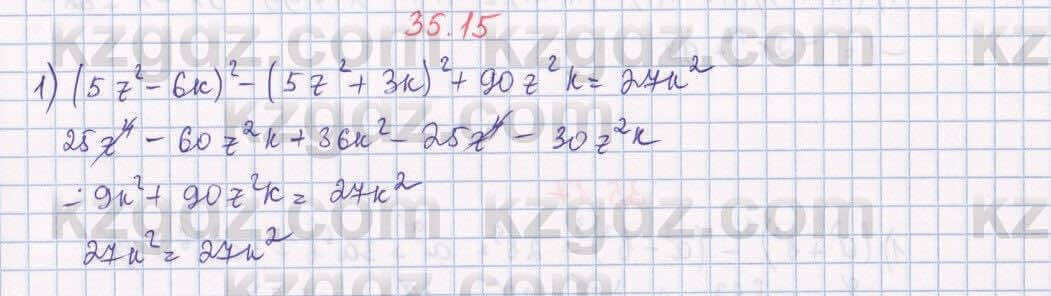 35.15
1) (5z² - 6k)² - (5z² + 3k)² + 90z²k = 27k²
25z⁴ - 60z²k + 36k² - 25z⁴ - 30z²k
- 9k² + 90z²k = 27k²
27k² = 27k²
kzgdz.com
kzgdz.com
kzgdz.com